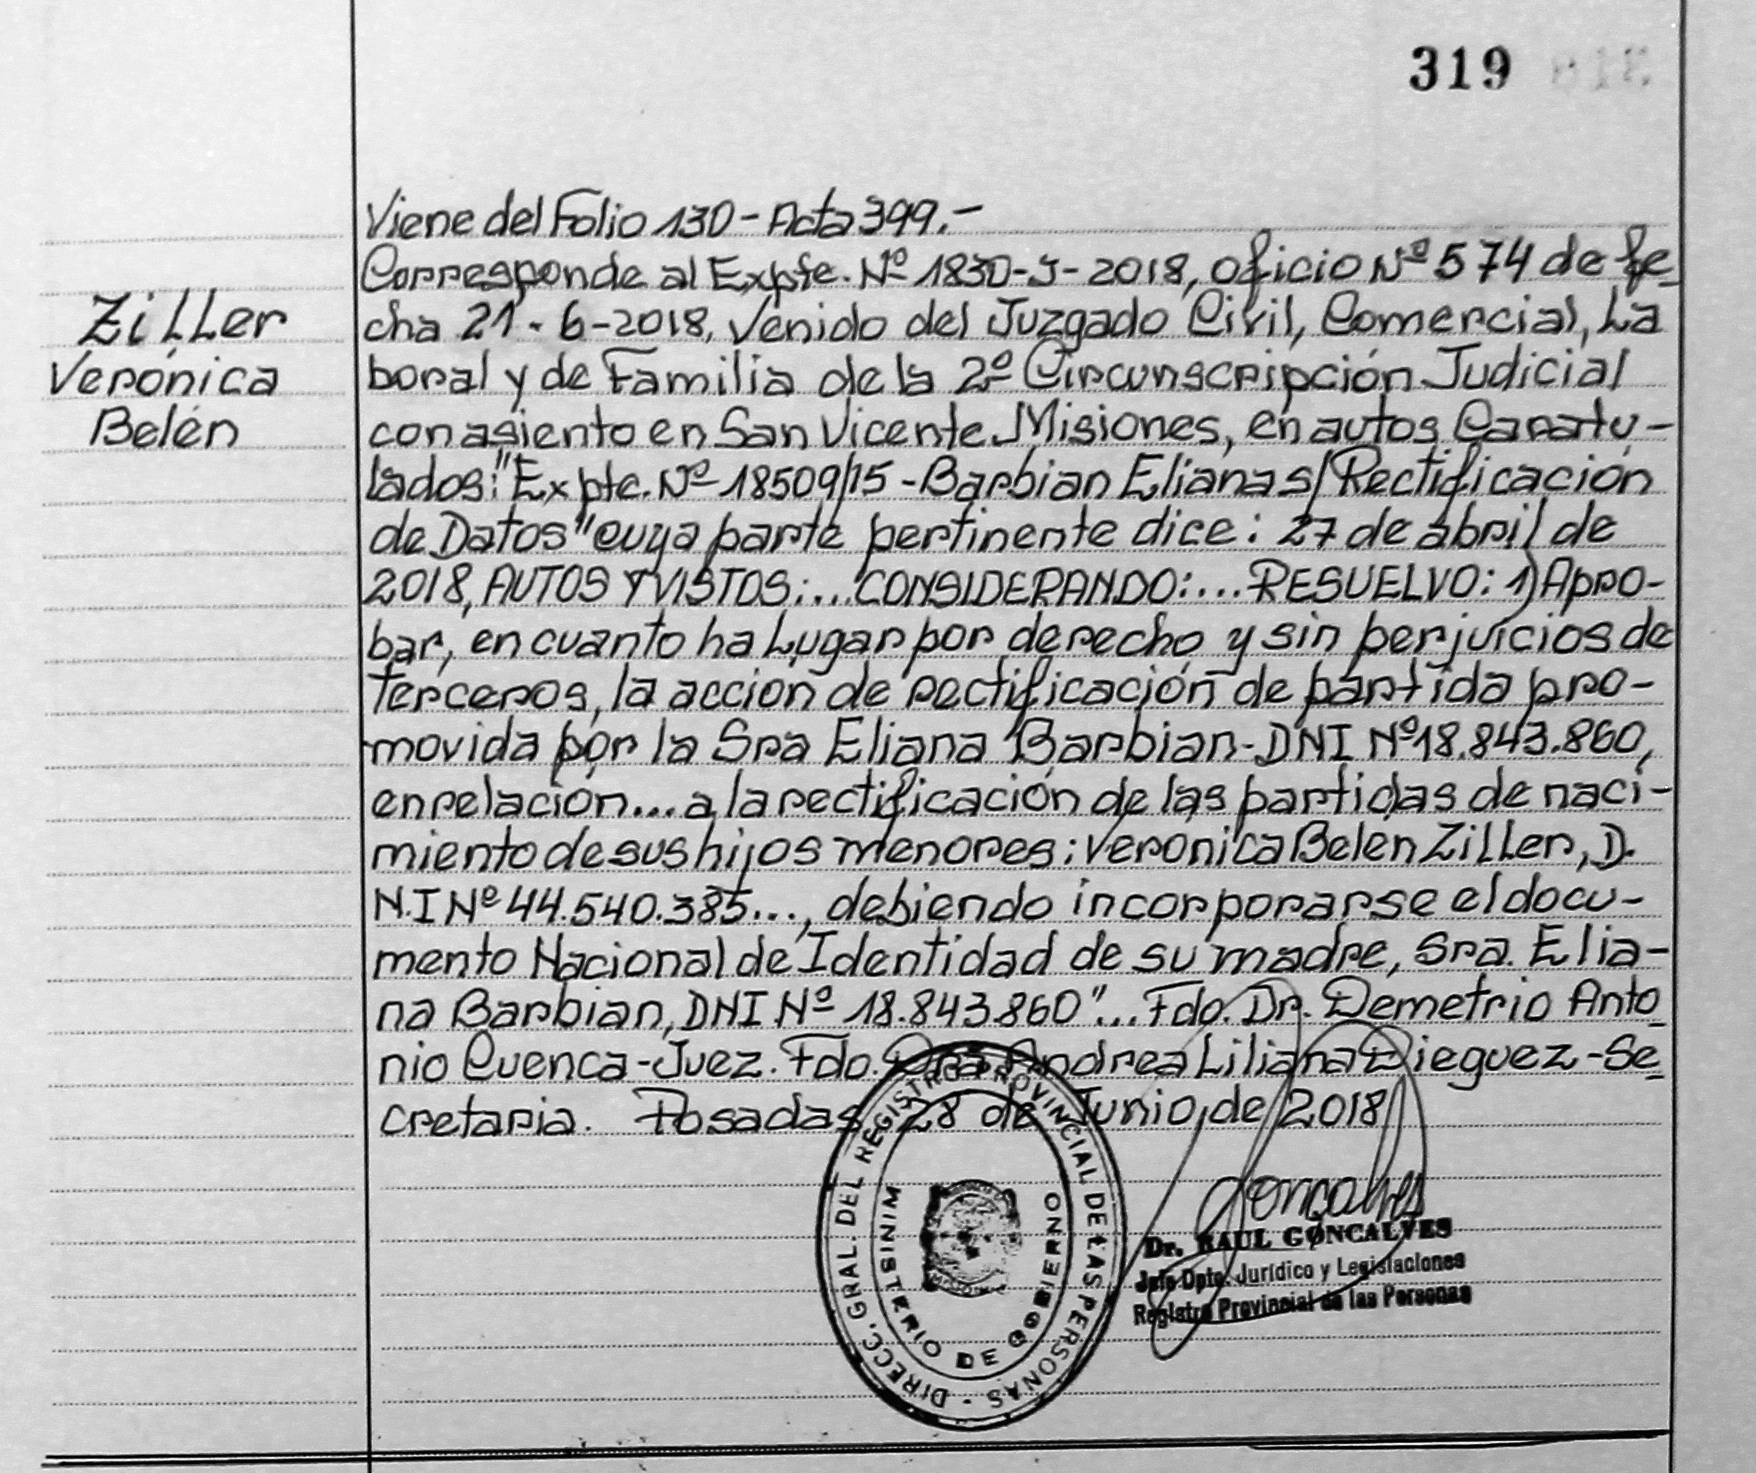 319
Ziller
Verónica
Belén
Viene del Folio 130 - Acta 399.-
Corresponde al Expte. Nº 1830-J-2018, oficio Nº 574 de fe-
cha 21-6-2018, Venido del Juzgado Civil, Comercial, La
boral y de Familia de la 2º Circunscripción Judicial
con asiento en San Vicente Misiones, en autos Caratu-
lados: "Expte. Nº 18509/15 - Barbian Eliana s/ Rectificación
de Datos" cuya parte pertinente dice: 27 de abril de
2018, AUTOS Y VISTOS:...CONSIDERANDO:....RESUELVO: 1) Apro-
bar, en cuanto ha Lugar por derecho y sin perjuicios de
Terceros, la accion de rectificación de partida pro-
movida por la Sra Eliana Barbian - DNI Nº 18.843.860,
en relacion... a la rectificación de las partidas de naci-
miento de sus hijos menores: Veronica Belen Ziller, D.
N.I Nº 44.540.385..., debiendo incorporarse el docu-
mento Nacional de Identidad de su madre, Sra. Elia-
na Barbian, DNI Nº 18.843.860"... Fdo. Dr. Demetrio Anto
nio Cuenca - Juez. Fdo. Dra Andrea Liliana Dieguez - Se
cretaria. Posadas, 28 de Junio de 2018
DIRECC. GRAL. DEL REGISTRO PROVINCIAL DE LAS PERSONAS -
MINISTERIO DE GOBIERNO
Goncalves
Dr. RAUL GONCALVES
Jefe Dpto. Jurídico y Legislaciones
Registro Provincial de las Personas